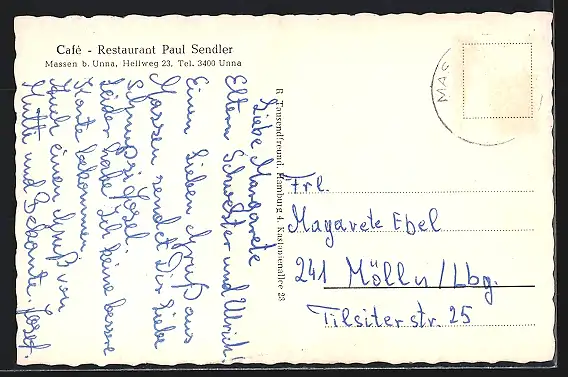 Café - Restaurant Paul Sendler
Massen b. Unna, Hellweg 23, Tel. 3400 Unna
Liebe Margarete
Eltern Schwester und Ulrich!
Einen Lieben Gruß aus
Massen sendet Dir Liebe
Josef.
Leider habe Ich keine bessere
Karte bekommen.
Auch einen Gruß von
Mutti und Bekannte. Josef.
R. Tausendfreund, Hamburg 4, Kastanienallee 23
MAS
Frl.
Magarete Ebel
241 Mölln/Lbg.
Tilsiter str. 25